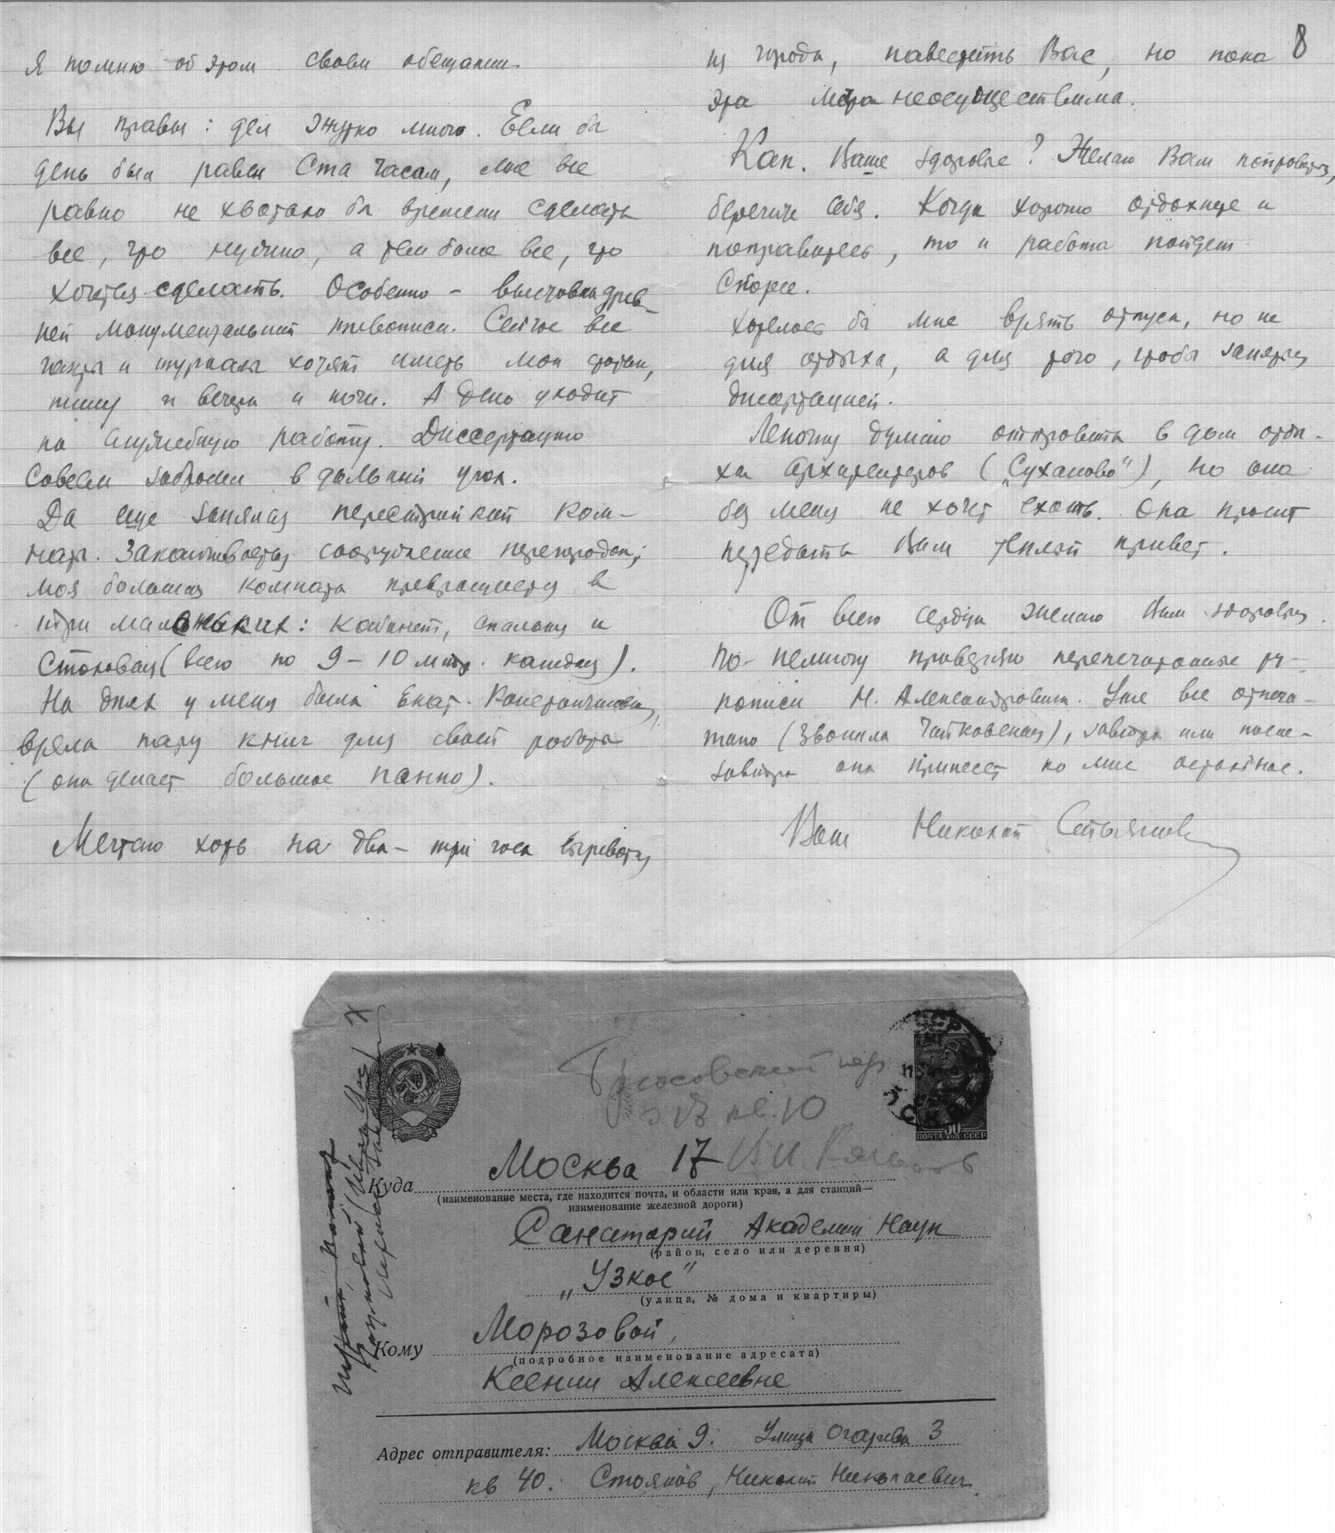 8
Я помню об этом своем обещании.
Вы правы: дел жутко много. Если бы
день был равен ста часам, мне все
равно не хватало бы времени сделать
все, что нужно, а тем более все, что
хочется сделать. Особенно – выставка древ-
ней монументальной живописи. Сейчас все
газеты и журналы хотят иметь мои статьи,
пишу и вечера и ночи. А день уходит
на служебную работу. Диссертацию
совсем забросил в дальний угол.
Да еще занялся перестройкой ком-
нат. Заканчивается сооружение перегородок;
моя большая комната превращается в
три маленьких: кабинет, спальню и
столовая (всего по 9–10 мтр. каждая).
На днях у меня была Екат. Константиновна,
взяла пару книг для своей работы
(она делает большое панно).
Мечтаю хоть на два–три часа вырваться
из города, навестить Вас, но пока
эта мера неосуществима.
Как Ваше здоровье? Желаю Вам поправиться,
берегите себя. Когда хорошо отдохнете и
поправитесь, то и работа пойдет
спорее.
Хотелось бы мне взять отпуск, но не
для отдыха, а для того, чтобы заняться
диссертацией.
Леночку думаю отправить в дом отды-
ха архитекторов („Суханово"), но она
без меня не хочет ехать. Она просит
передать Вам теплый привет.
От всего сердца желаю Вам здоровья.
По-немногу проверяю перепечатанные ру-
кописи Н. Александровича. Уже все отпеча-
тано (звонила), завтра или после-
завтра она принесет ко мне остальное.
Ваш Николай
СССР
пер
кв. 10
50
ПОЧТА СССР
Куда Москва 17
(наименование места, где находится почта, и области или края, а для станций—
наименование железной дороги)
Санаторий Академии Наук
(район, село или деревня)
„Узкое"
(улица, № дома и квартиры)
Кому Морозовой,
(подробное наименование адресата)
Ксении Алексеевне
Адрес отправителя: Москва 9. Улица Огарева 3
кв 40. Стоянов, Николай Николаевич